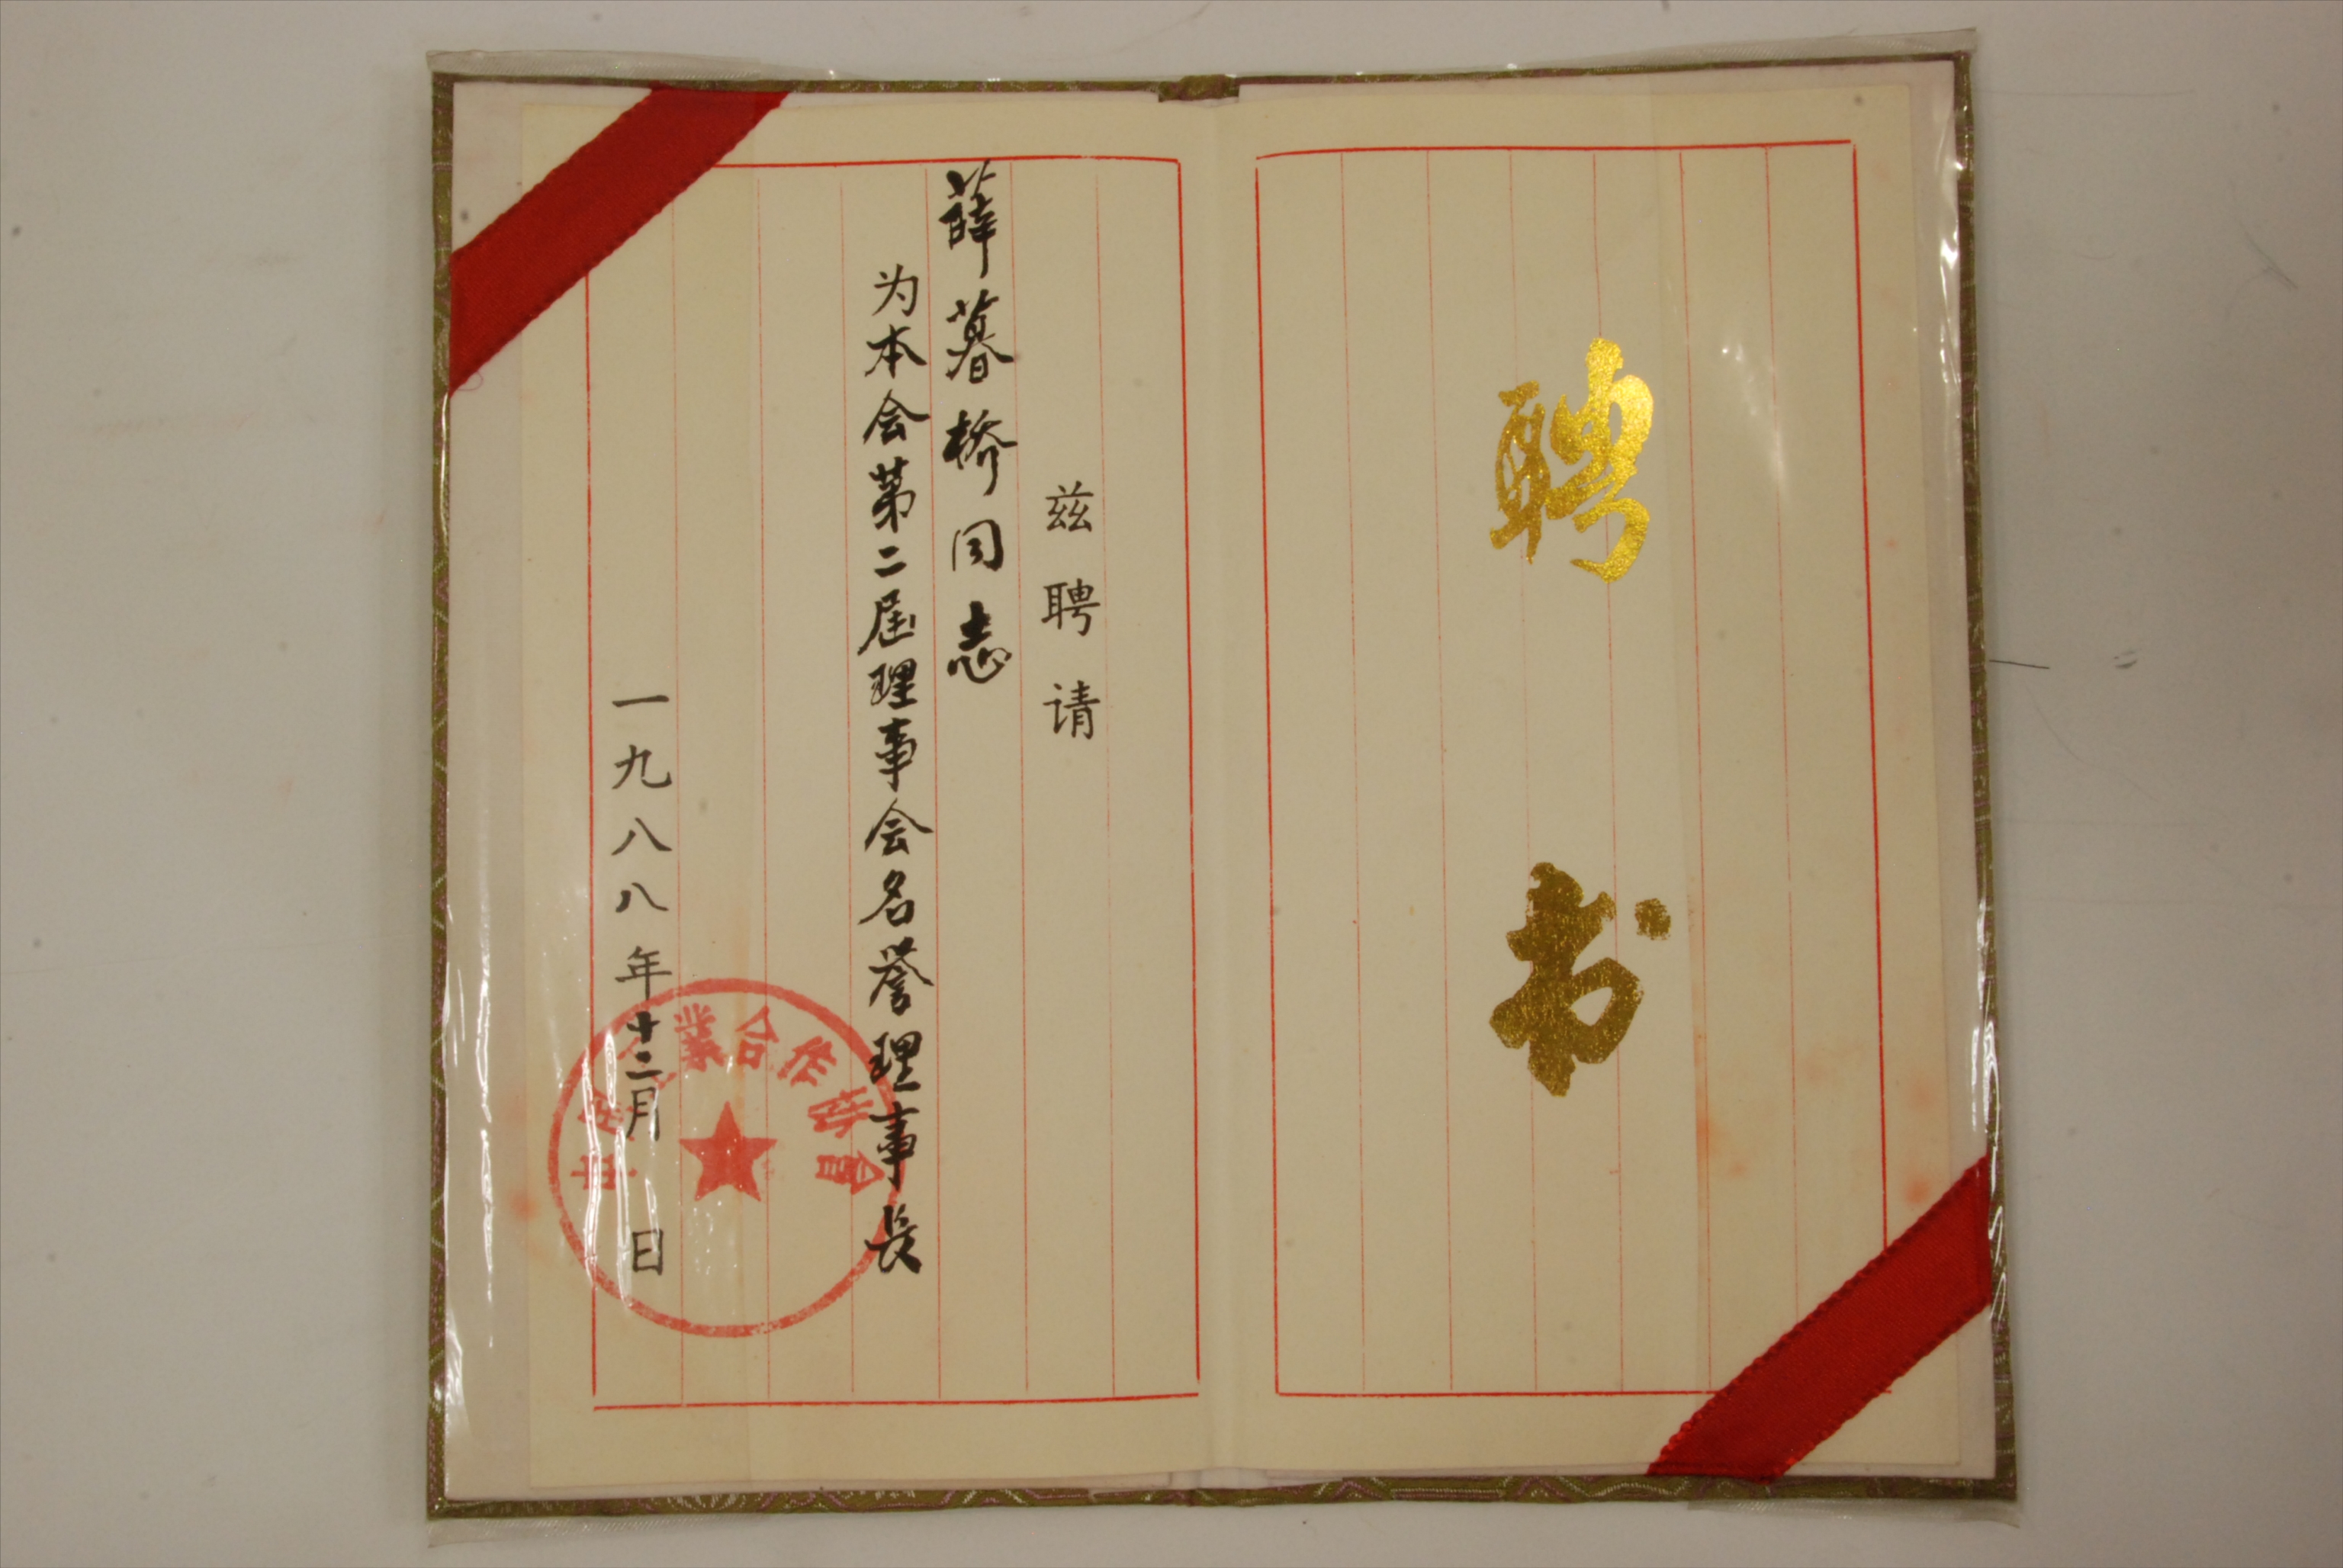 聘书
兹聘请
薛暮桥同志
为本会第二届理事会名誉理事长
一九八八年十二月 日
中国工業合作协會